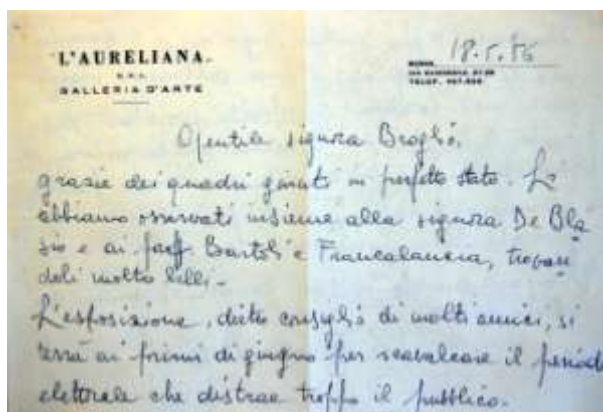 L'AURELIANA
GALLERIA D'ARTE
ROMA 18.5.56
TELEF.
Gentile signora Broglio,
grazie dei quadri giunti in perfetto stato. Li
abbiamo osservati insieme alla signora De Bla
sio e ai proff Bartoli e Francalancia, trovan
doli molto belli.
L'esposizione, dietro consiglio di molti amici, si
terrà ai primi di giugno per scavalcare il periodo
elettorale che distrae troppo il pubblico.